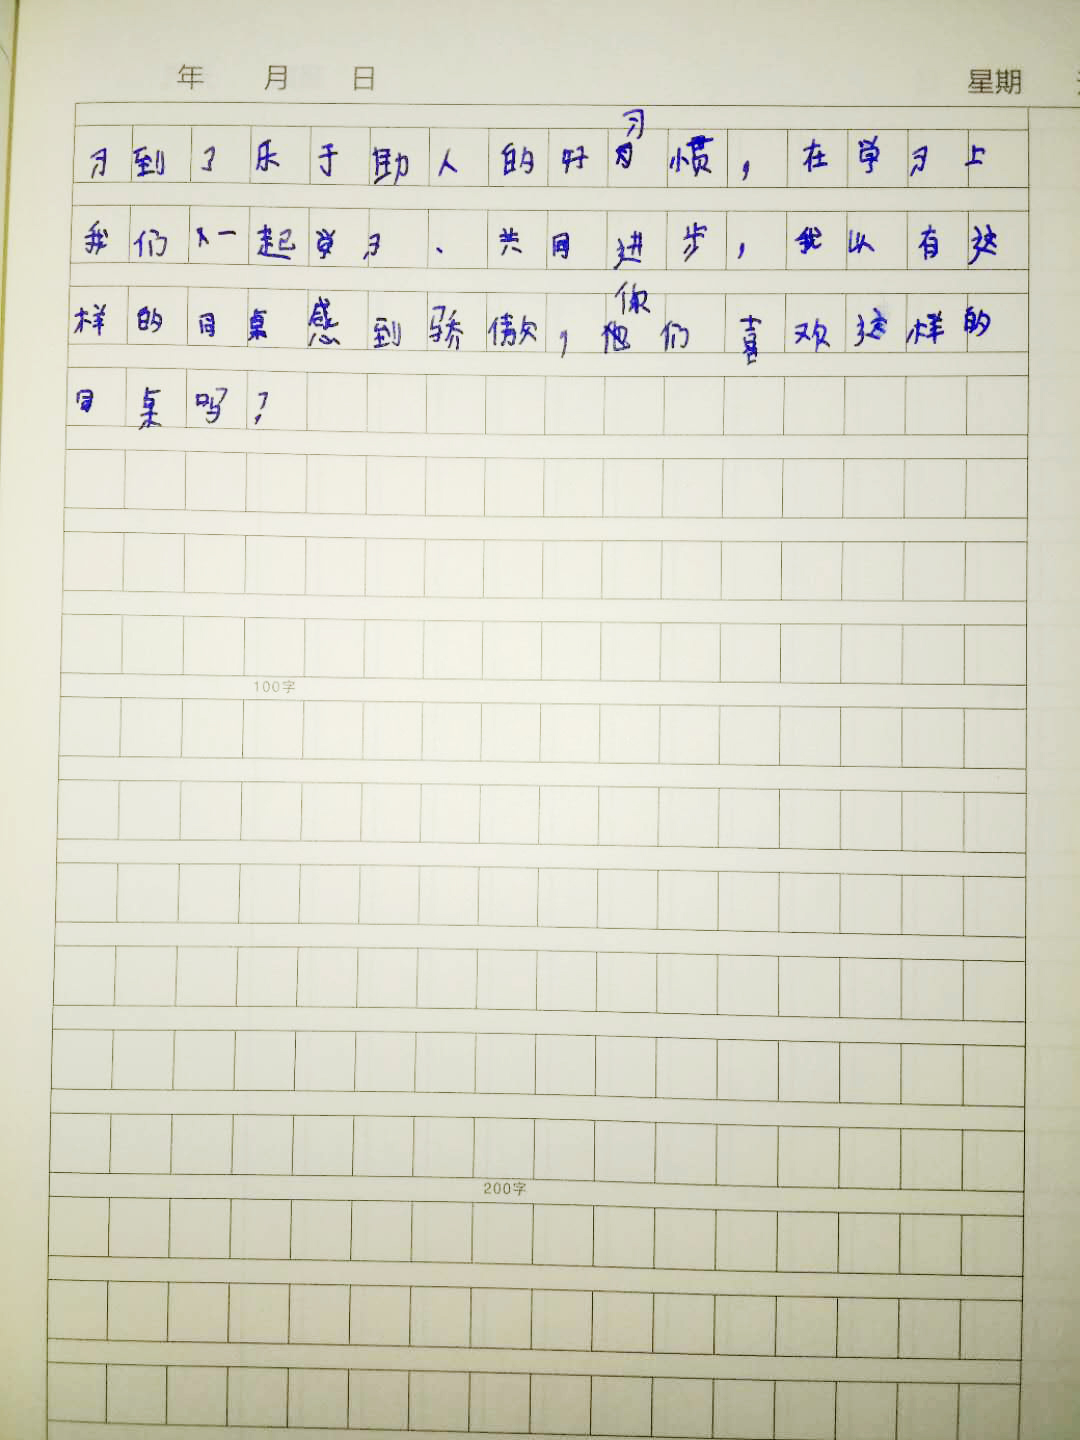 年 月 日 星期
习到了乐于助人的好习惯,在学习上
我们一起学习、共同进步,我以有这
样的同桌感到骄傲,你们喜欢这样的
同桌吗?
100字
200字